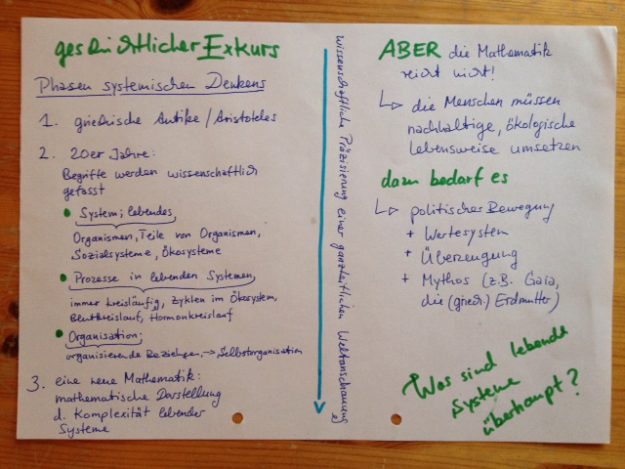 geschichtlicher Exkurs
Phasen systemischen Denkens
1. griechische Antike / Aristoteles
2. 20er Jahre:
Begriffe werden wissenschaftlich
gefasst
• System; lebendes,
Organismen, Teile von Organismen,
Sozialsysteme, Ökosysteme
• Prozesse in lebenden Systemen,
immer kreisläufig, Zyklen im Ökosystem,
Blutkreislauf, Hormonkreislauf
• Organisation;
organisierende Beziehgen, → Selbstorganisation
3. eine neue Mathematik:
mathematische Darstellung
d. Komplexität lebender
Systeme
wissenschaftliche Präzisierung einer ganzheitlichen Weltanschauung
ABER die Mathematik
reicht nicht!
↳ die Menschen müssen
nachhaltige, ökologische
Lebensweise umsetzen
dazu bedarf es
↳ politischer Bewegung
+ Wertesystem
+ Überzeugung
+ Mythos (z.B. Gaia,
die (griech.) Erdmutter)
Was sind lebende
Systeme
überhaupt?